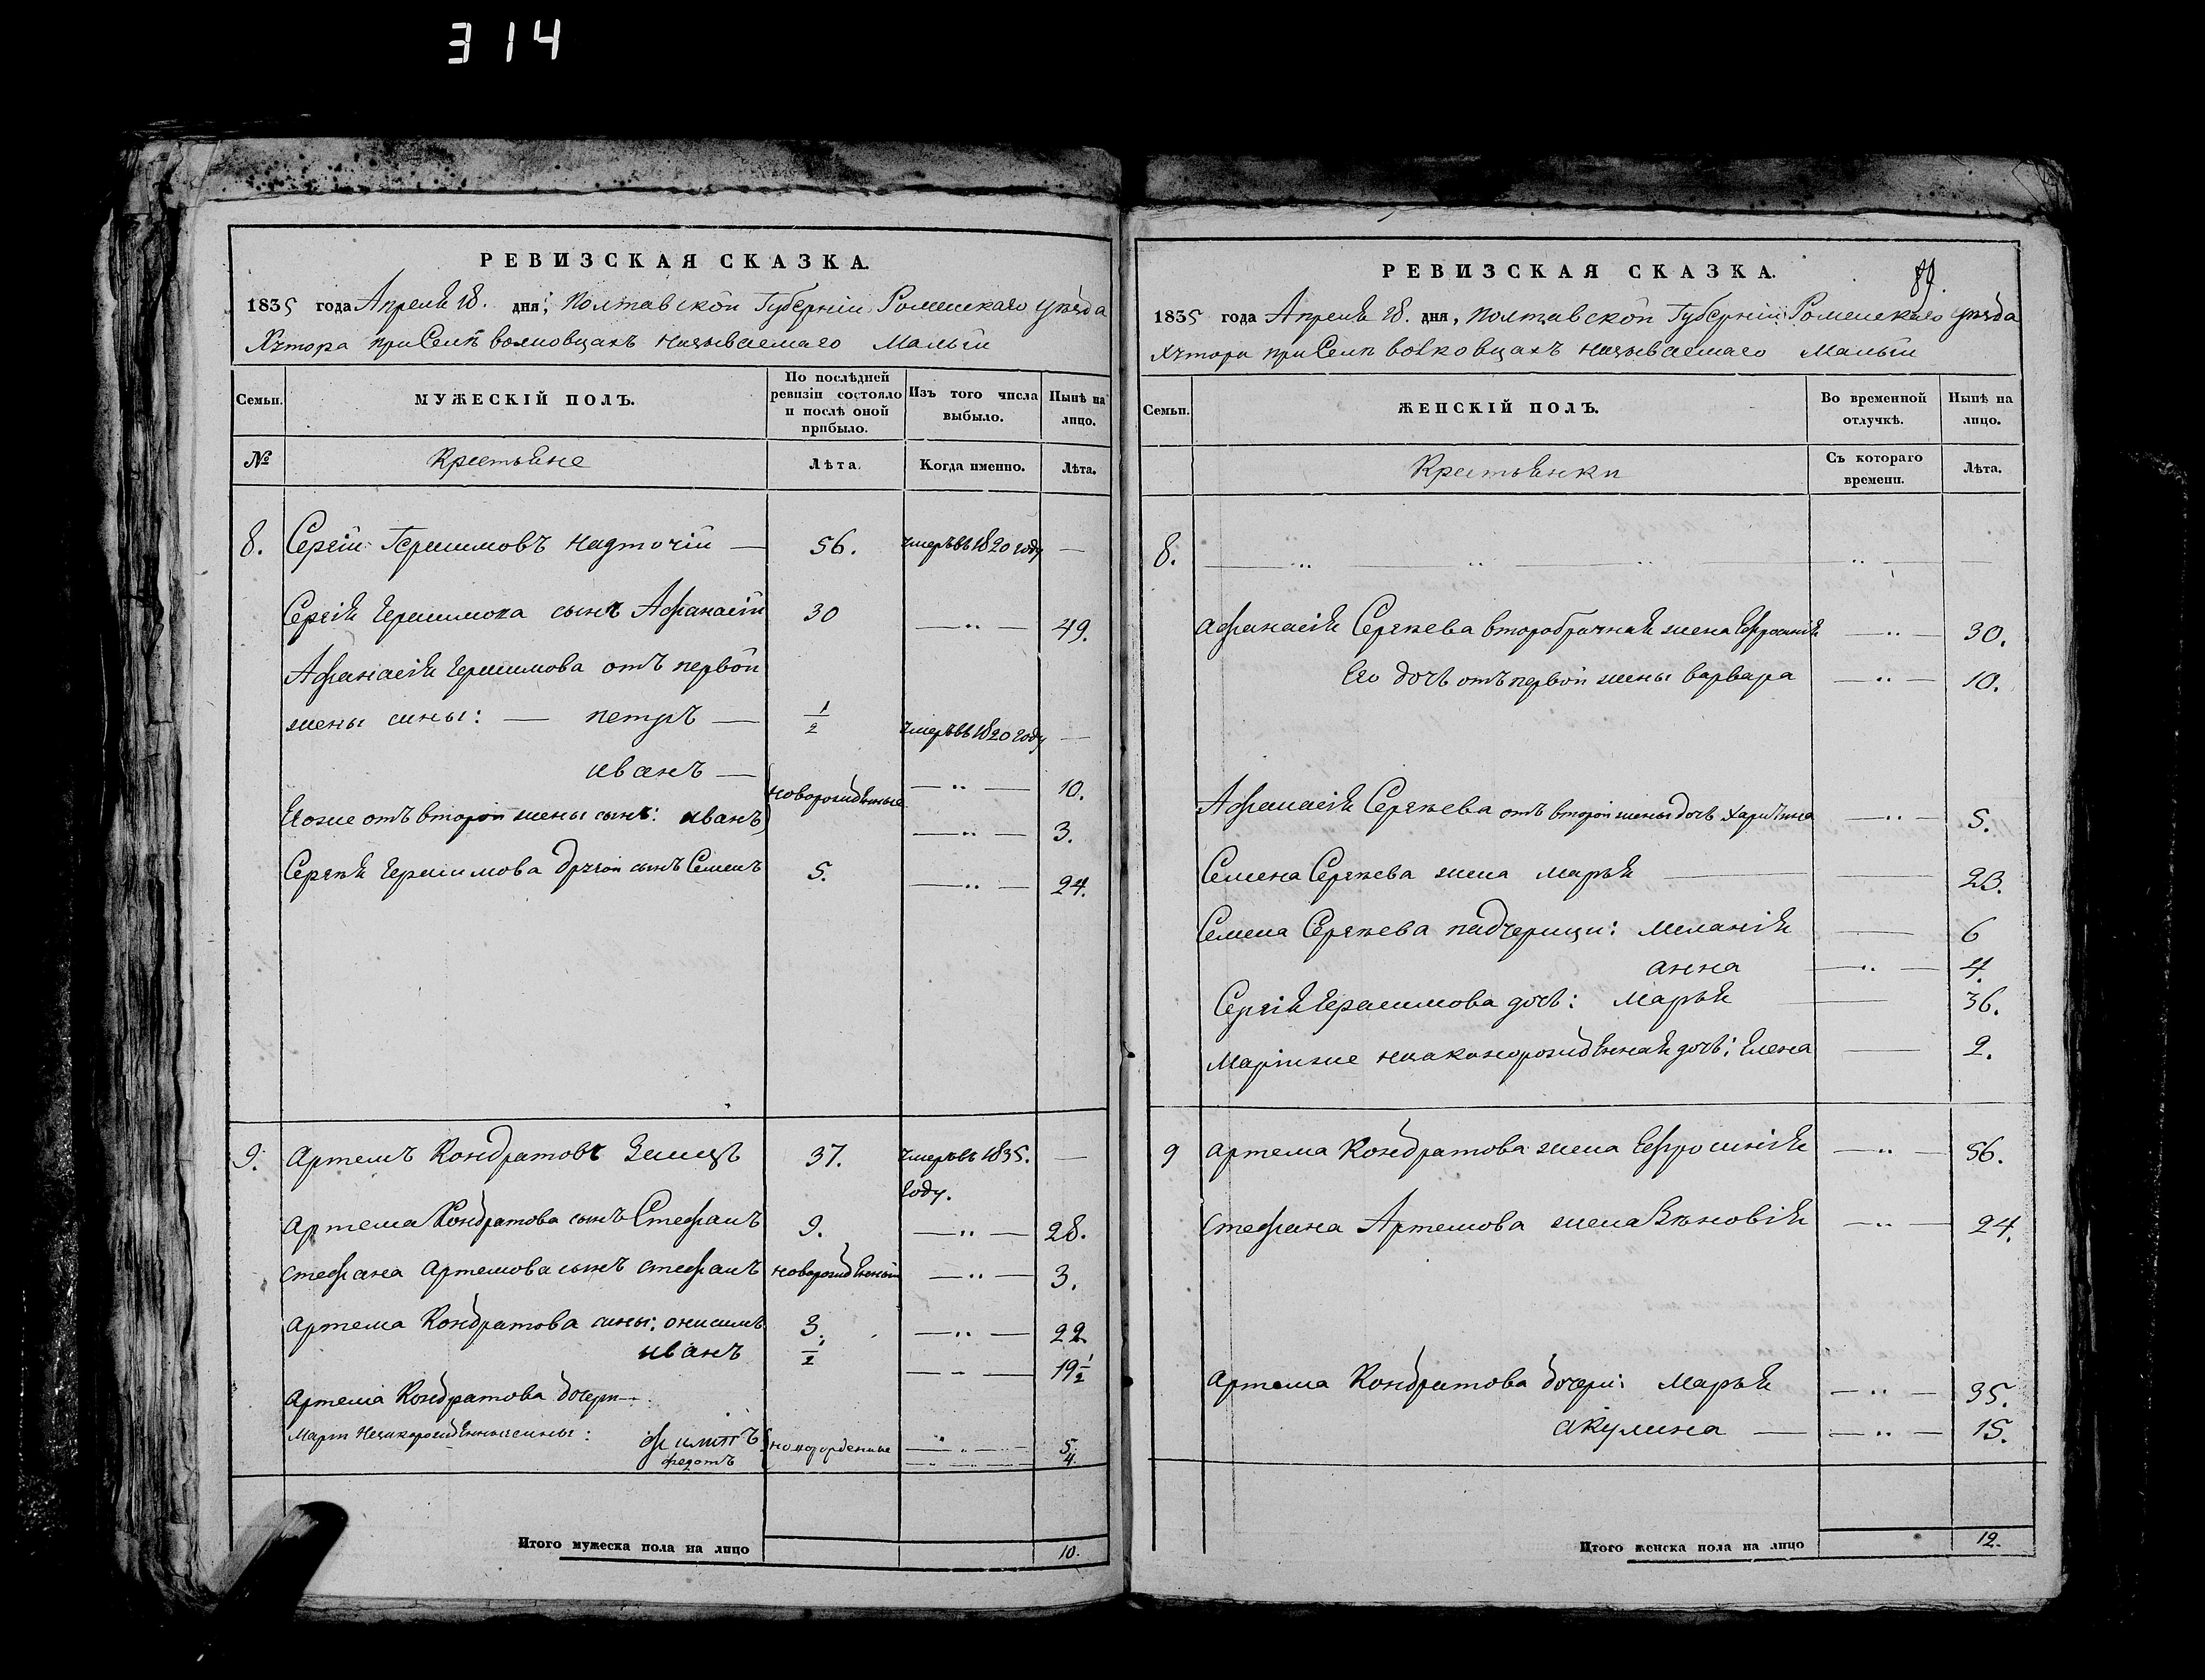 314
РЕВИЗСКАЯ СКАЗКА.
1835 года Апреля 18. дня, Полтавской Губерніи Роменскаго уѣзда
Хутора при Селѣ волковцахъ называемаго Малыи
Семьи.
МУЖЕСКІЙ ПОЛЪ.
По послѣдней ревизіи состояло и послѣ оной прибыло.
Изъ того числа выбыло.
Нынѣ на лицо.
№
Крестьяне
Лѣта.
Когда именно.
Лѣта.
8. Сергій Герасимовъ Надточій — 56. умеръ въ 1820 году —
Сергія Герасимова сынъ Афанасій 30 — 49.
Афанасія Герасимова отъ первой
жены сины: — петръ — 1/2 умеръ въ 1820 году —
иванъ — новорожденные — 10.
Его же отъ второй жены сынъ: иванъ — 3.
Сергѣя Герасимова другой сынъ Семенъ 5. — 24.
9. Артемъ Кондратовъ 37. умеръ въ 1835. году. —
Артема Кондратова сынъ Стефанъ 9. — 28.
Стефана Артемова сынъ стефанъ новорожденный — 3.
Артема Кондратова сины: онисимъ 3. — 22.
иванъ 1/2 — 19 1/2
Артема Кондратова дочери —
Маріи Незаконорожденные сины: филипъ новорожденные — 5
федотъ — 4.
Итого мужеска пола на лицо 10.
РЕВИЗСКАЯ СКАЗКА.
89.
1835 года Апреля 18. дня, Полтавской Губерніи Роменскаго уѣзда
Хутора при Селѣ волковцахъ называемаго Малыи
Семьи.
ЖЕНСКІЙ ПОЛЪ.
Во временной отлучкѣ.
Нынѣ на лицо.
Крестьянки
Съ котораго времени.
Лѣта.
8.
Афанасія Сергѣева второбрачная жена Ефросинія — 30.
Его дочь отъ первой жены варвара — 10.
Афанасія Сергѣева отъ второй жены дочь харитина — 5.
Семена Сергѣева жена марья — 23.
Семена Сергѣева падчерицы: меланія — 6
анна — 4.
Сергія Герасимова дочь: марья — 36.
Маріи же незаконорожденная дочь: Елена — 2.
9 Артема Кондратова жена Ефросинія — 56.
Стефана Артемова жена Зѣновія — 24.
Артема Кондратова дочери: Марья — 35.
акулина — 15.
Итого женска пола на лицо 12.